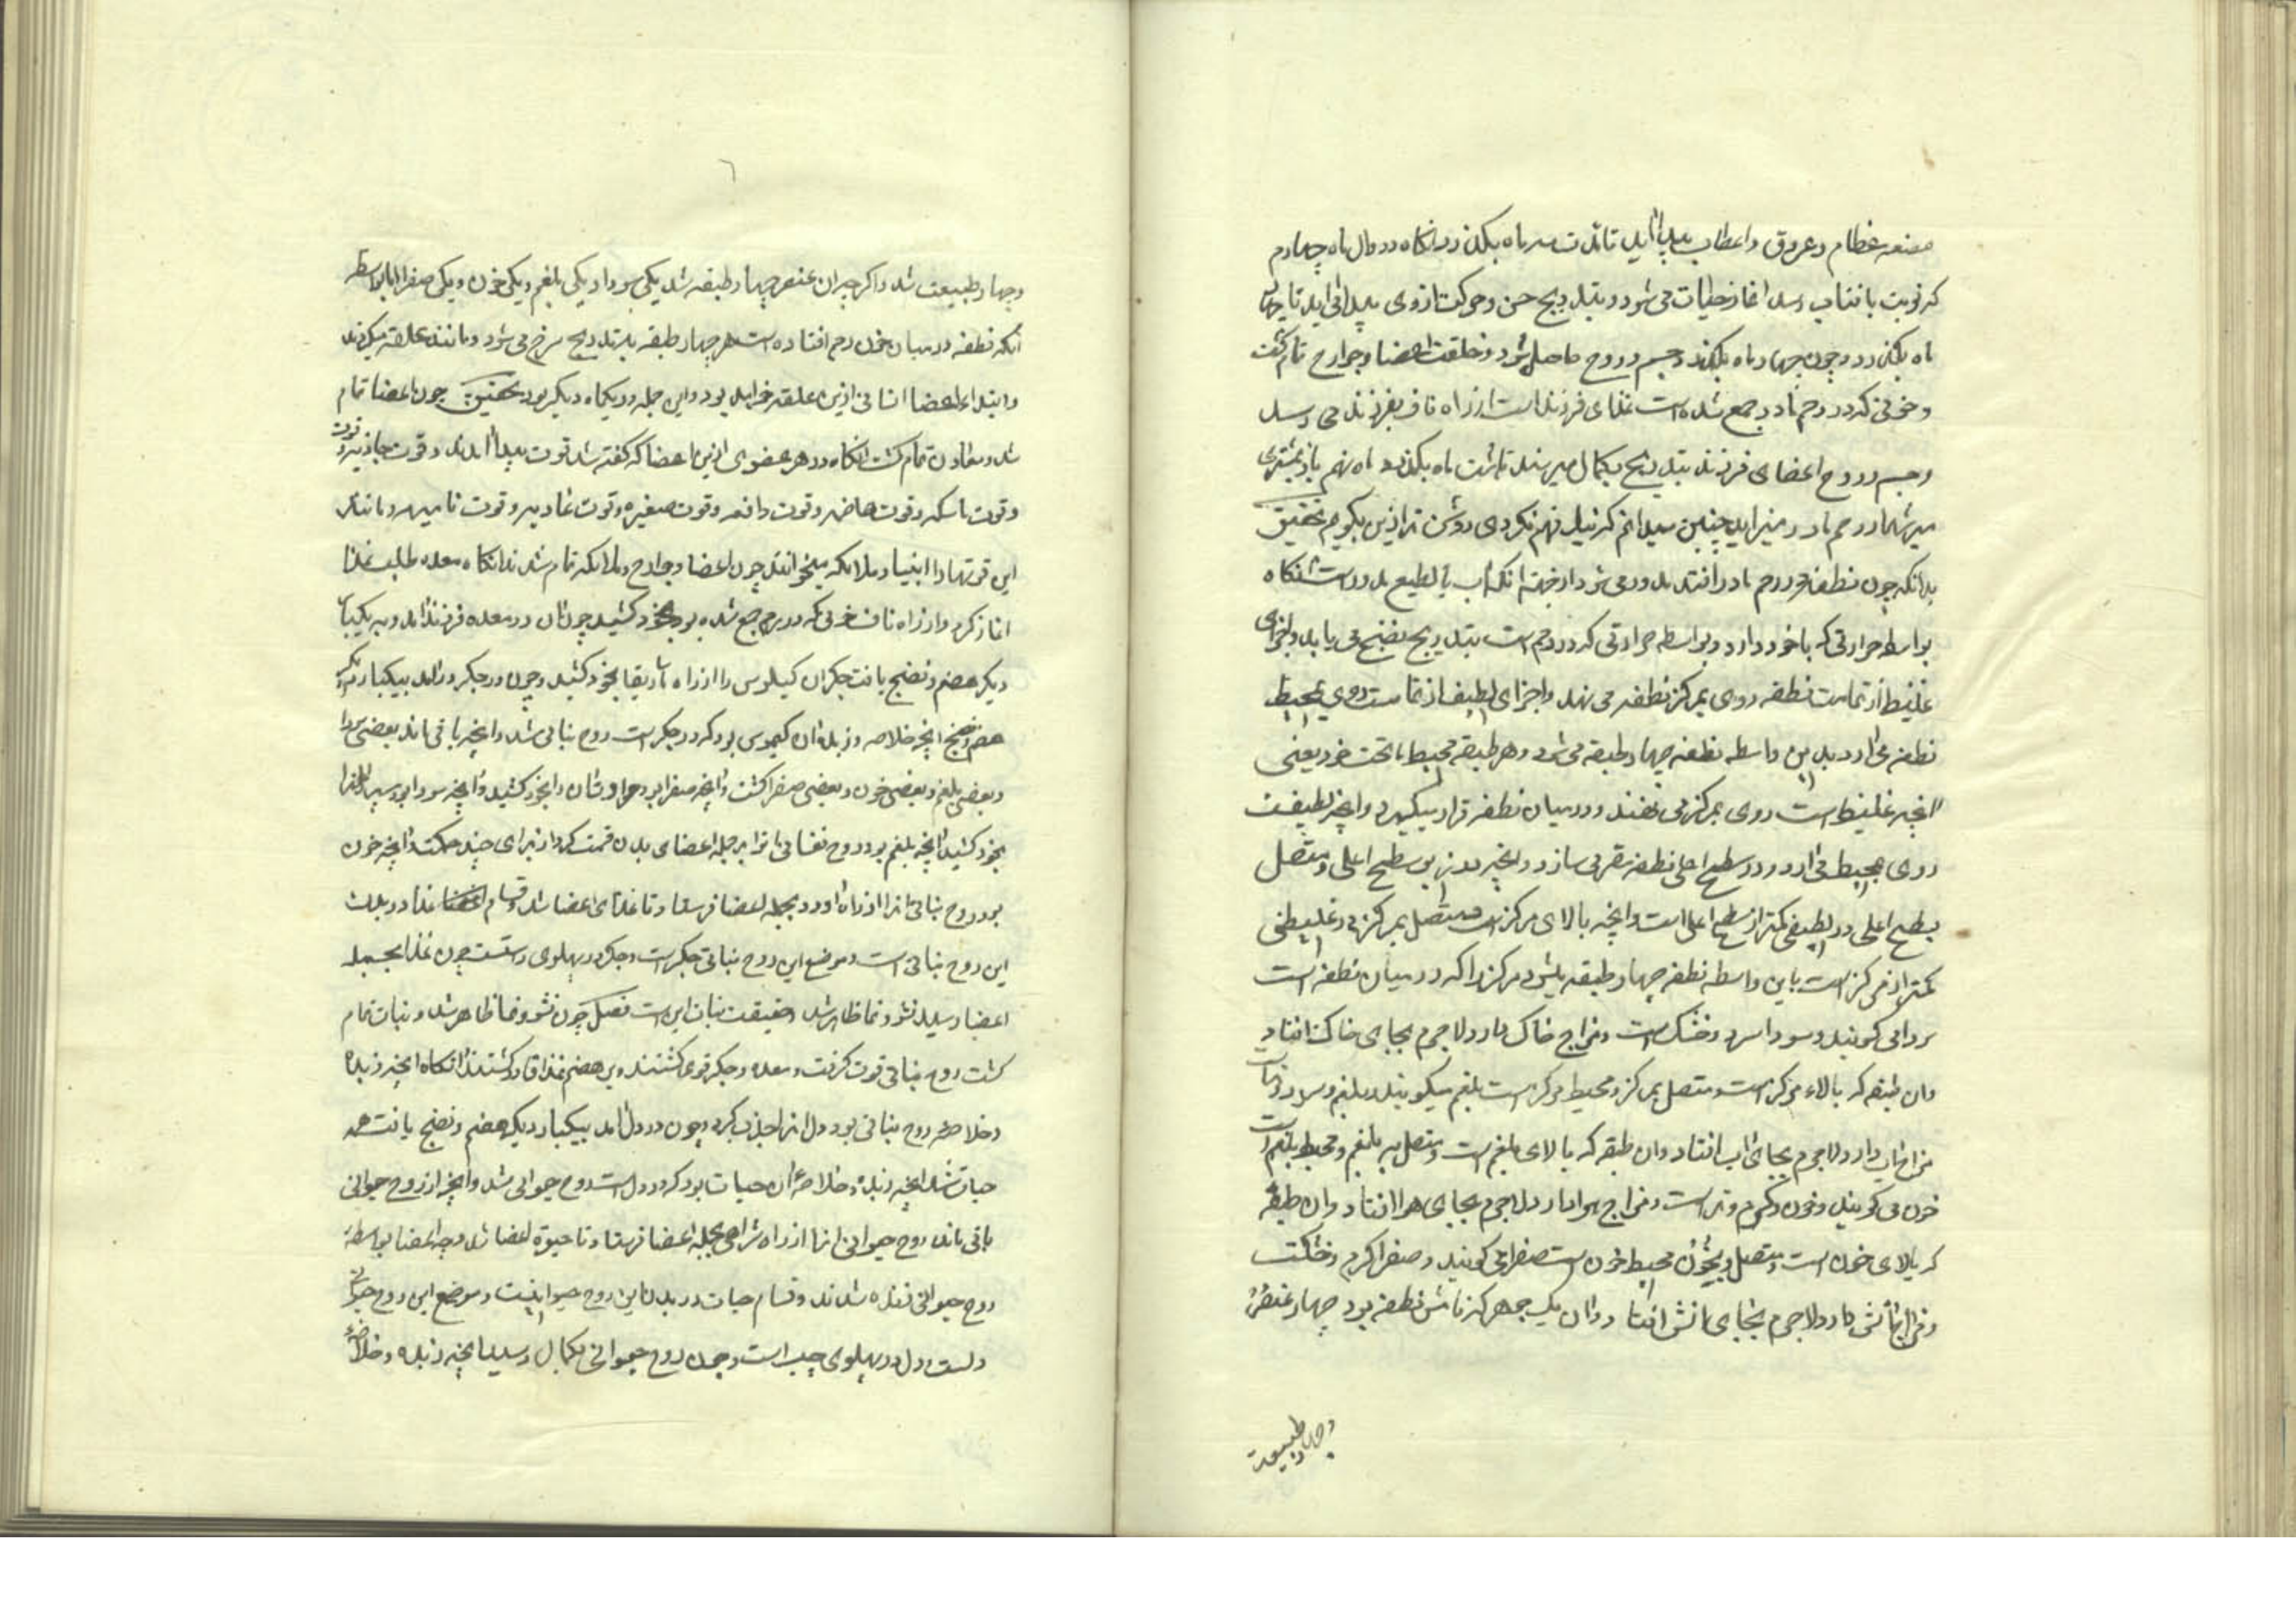 مضغه عظام و عروق و اعطاب پیدا آید تا مدت سه ماه بکذرد انکاه در اول ماه چهارم
که نوبت بافتاب رسد اغاز حیات می شود و بتدریج حس و حرکت از وی پیدا می اید تا چهار
ماه بکذرد و چون چهار ماه بکذرد جسم و روح حاصل شود و خلقت اعضا و جوارح تمام کشت
و خونی که در رحم مادر جمع شده است غذای فرزند است از راه ناف بفرزند می رسد
و جسم و روح اعضای فرزند بتدریج بکمال میرسد تا هشت ماه بکذرد ماه نهم باز بمشتری
میرسد از رحم مادر میزاید چنین میدانم که نیک فهم نکردی روشن تر ازین بکویم بتحقیق
بدانکه چون نطفه در رحم مادر افتد مدور می شود از جهة انکه آب بالطبع مدورست انکاه
بواسطه حرارتی که با خود دارد و بواسطه حرارتی که در رحم است بتدریج نضج می یابد و اجزای
غلیظ از تمامت نطفه روی بمرکز نطفه می نهد و اجزای لطیف از تمامت روی بمحیط
نطفه می ارد بدین واسطه نطفه چهار طبقه می شود و هر طبقه محیط ما تحت خود یعنی
انچه غلیظ است روی بمرکز می نهند و در میان نطفه قرار میکیرد و انچه لطیفست
روی بمحیط می ارد و در سطح اعلی نطفه مقر می سازد و انچه در زیر سطح اعلی و متصل
بسطح اعلی در لطیفی کمتر از سطح اعلی است و انچه بالای مرکز است متصل بمرکز در غلیظی
کمتر از مرکز است باین واسطه نطفه چهار طبقه میشود مرکز را که در میان نطفه است
سودا می کویند و سودا سرد و خشک است و مزاج خاک دارد لاجرم بجای خاک افتاد
وان طبقه که بالاء مرکز است و متصل بمرکز و محیط مرکز است بلغم میکویند و بلغم سرد و تر است
مزاج اب دارد لاجرم بجای اب افتاد وان طبقه که بالای بلغم است و متصل به بلغم و محیط بلغم است
خون می کویند و خون کرم و تر است و مزاج هوا دارد لاجرم بجای هوا افتاد وان طبقه
که بالای خون است و متصل بخون و محیط خون است صفرا می کویند و صفرا کرم و خشکست
و مزاج اتش دارد لاجرم بجای اتش افتاد وان یک جوهر که نامش نطفه بود چهار عنصر
و چهار طبیعت
وچهار طبیعت شد و اکر چه ان عنصر چهار طبقه شد یکی سودا و یکی بلغم و یکی خون و یکی صفرا اما بواسطه
انکه نطفه در میان خون رحم افتاده است هر چهار طبقه بتدریج سرخ می شود و مانند علقه میکردد
و ابتداء اعضا انسانی ازین علقه خواهد بود و این جمله در یکماه دیکر بود بتحقیق چون اعضا تمام
شد و معادن تمام کشت انکاه در هر عضوی ازین اعضا که کفته شد قوت پیدا امدند و قوت جاذبه و قوت
و قوت ماسکه و قوت هاضمه و قوت دافعه و قوت مغیره و قوت غاذیه و قوت نامیه و مانند
این قوتها را انبیا و ملایکه میخوانند چون اعضا و جوارح و ملایکه تمام شدند انکاه معده طلب غذا
اغاز کرد و از راه ناف خونی که در رحم جمع شده بود بخود کشید چون ان در معده فرزند امد و به یکبار
دیکر هضم و نضج یافت جکر ان کیلوس را از راه ماساریقا بخود کشید و چون در جکر درامد بیکبار دیکر
هضم و نضج انچه خلاصه و زبده ان کیموس بود که در جکر است روح نباتی شد و انچه باقی ماند بعضی سودا
و بعضی بلغم و بعضی خون و بعضی صفرا کشت و انچه صفرا بود مراره ان را بخود کشید و انچه سودا بود سپرز انرا
بخود کشید انچه بلغم بود روح نفسانی انرا بر جمله اعضای بدن قسمت کرد از برای چند حکمت و انچه خون
بود روح نباتی انرا از راه اورده بجمله اعضا فرستاد تا غذای اعضا شد و قسام غذا در بدن
این روح نباتی است و موضع این روح نباتی جکر است و جکر در پهلوی راستست چون غذا بجمله
اعضا رسید نشو و نما ظاهر شد و حقیقت نبات این است فصل چون نشو و نما ظاهر شد و نبات تمام
کشت روح نباتی قوت کرفت و معده و جکر قوی کشتند و بر هضم غذا قادر کشتند انکاه انچه زبده
و خلاصه روح نباتی بود دل انرا جذب کرد و چون در دل امد بیکبار دیکر هضم و نضج یافت همه
حیات شد انچه زبده و خلاصه ان حیات بود که در دل است روح حیوانی شد و انچه از روح حیوانی
باقی ماند روح حیوانی انرا از راه شرایین بجمله اعضا فرستاد تا حیوة اعضا شد و جمله اعضا بواسطه
روح حیوانی زنده شدند و قسام حیات در بدن این روح حیوانیست و موضع این روح حیوانی
دلست و دل در پهلوی چپ است و چون روح حیوانی بکمال رسید انچه زبده و خلاصه